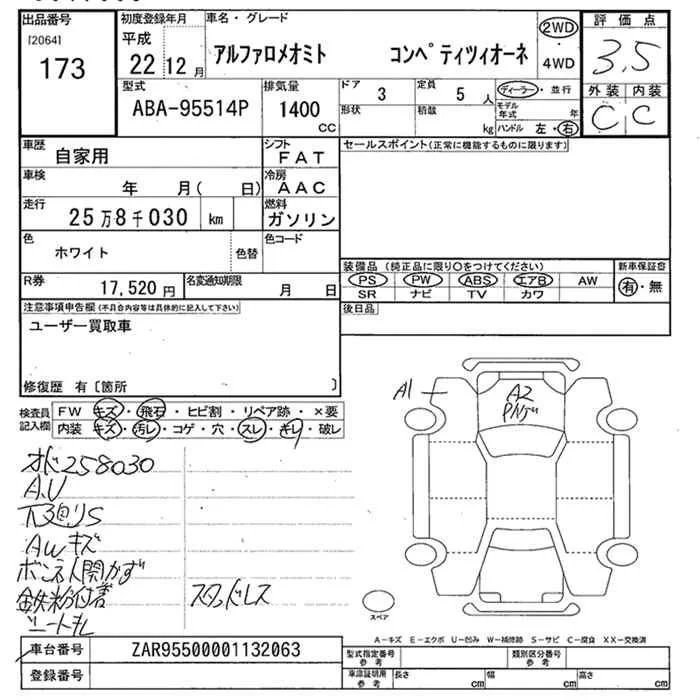 出品番号
[2064]
173
初度登録年月
平成
22 12 月
車名・グレード
アルファロメオミト コンペティツィオーネ
2WD
・
4WD
評価点
3.5
外装 内装
C C
型式
ABA-95514P
排気量
1400
cc
ドア 3
定員 5 人
形状
積載 kg
ディーラー・並行
モデル年式 年
ハンドル 左・右
車歴
自家用
シフト
FAT
セールスポイント(正常に機能するものに限ります)
車検
年 月( 日)
冷房
AAC
走行
25万8千030 km
燃料
ガソリン
色
ホワイト
色替
色コード
装備品(純正品に限り○をつけてください)
新車保証書
PS PW ABS エアB AW
SR ナビ TV カワ
有・無
R券
17,520 円
名変通知期限
月 日
後日品
注意事項申告欄(不具合内容等は具体的に記入して下さい)
ユーザー買取車
修復歴 有〔箇所 〕
検査員記入欄
FW キズ・飛石・ヒビ割・リペア跡・×要
内装 キズ・汚レ・コゲ・穴・スレ・キレ・破レ
A1
A2
258030
A.U
下廻りS
AWキズ
鉄粉付着
シートキレ
スペア
A-キズ E-エクボ U-凹み W-補修跡 S-サビ C-腐食 XX-交換済
車台番号
ZAR95500001132063
登録番号
型式指定番号
参考
類別区分番号
参考
車庫証明用
参考
長さ cm
幅 cm
高さ cm